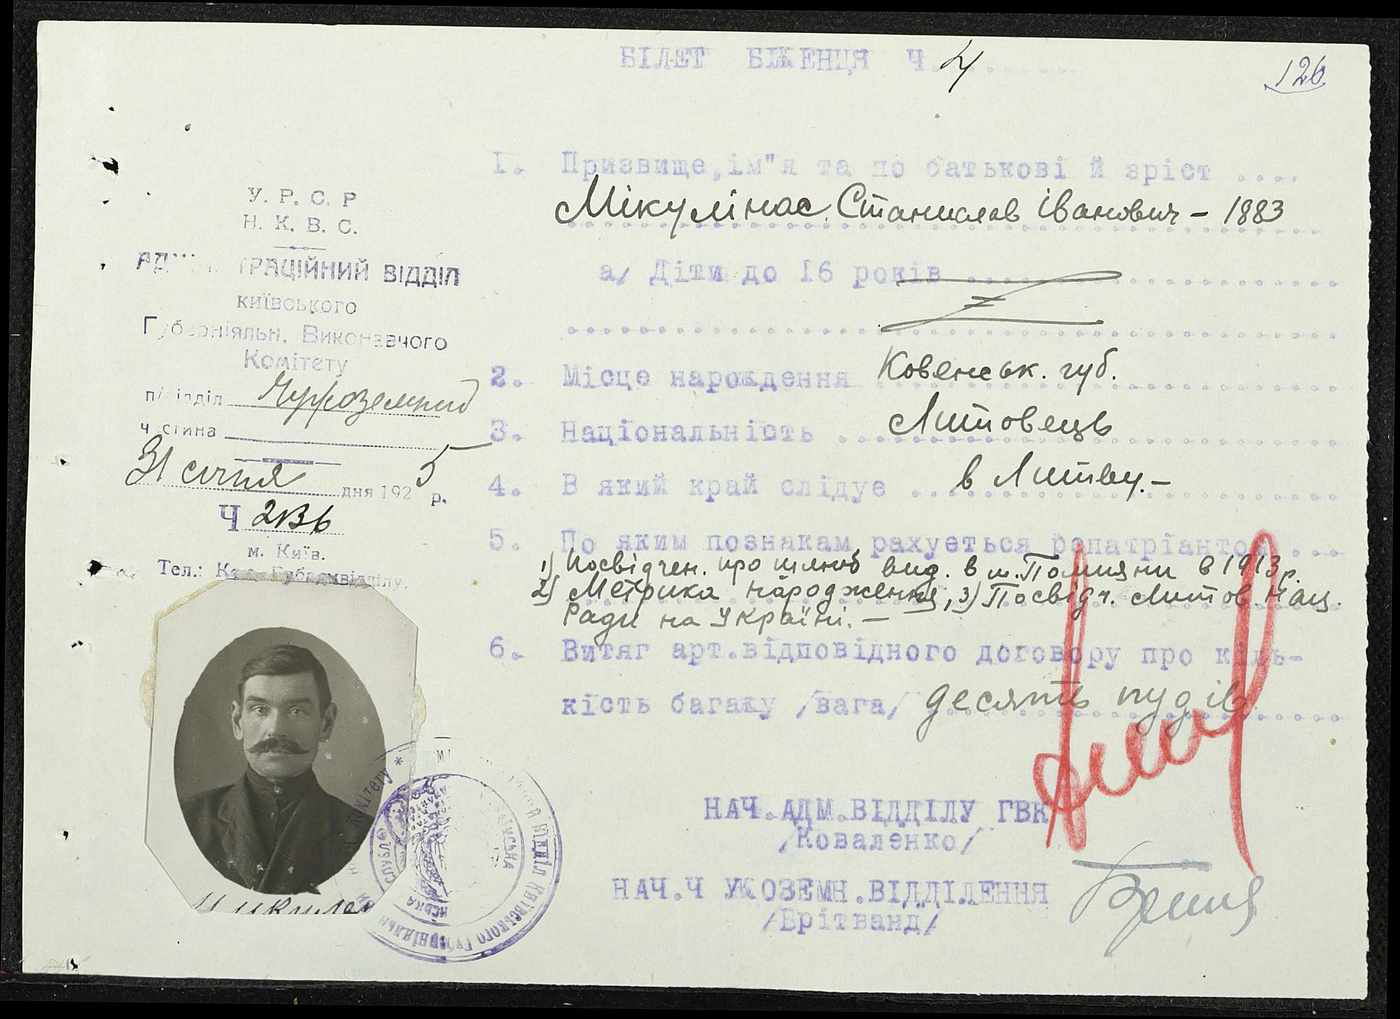 БІЛЕТ БІЖЕНЦЯ Ч. 4
126
У. Р. С. Р
Н. К. В. С.
АДМІНІСТРАЦІЙНИЙ ВІДДІЛ
київського
Губерніяльн. Виконавчого
Комітету
підвідділ Чужоземний
частина
31 січня дня 1925 р.
Ч
м. Київ.
Тел.: Губадмвідділу.
1. Призвище,ім"я та по батькові й зріст ....
Мікулінас Станислав Іванович – 1883
а/ Діти до 16 років
2. Місце нарождення Ковенськ. губ.
3. Національність Литовець
4. В який край слідує в Литву. –
5. По яким познакам рахується репатріантом
1) Посвідчен. про шлюб вид. в м. в 1913 р.
2) Метрика народження, 3) Посвідч. Литов. Нац.
Ради на Україні. –
6. Витяг арт.відповідного договору про кіль-
кість багажу /вага/ десять пудів
НАЧ.АДМ.ВІДДІЛУ ГВК
/Коваленко/
НАЧ.ЧУЖОЗЕМН.ВІДДІЛЕННЯ
/Брітванд/